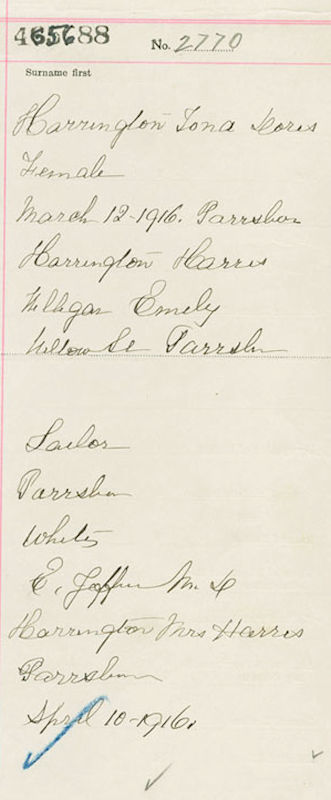 465688
No. 2770
Surname first
Harrington Iona Doris
Female
March 12-1916. Parrsboro
Harrington Harris
Milligan Emily
Willow St Parrsboro
Sailor
Parrsboro
White
E. M. D
Harrington Mrs Harris
Parrsboro
April 10-1916.